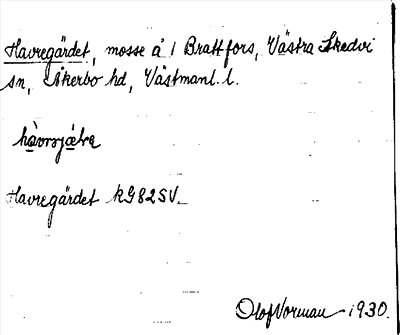 Havregärdet, mosse å 1 Brattfors, Västra Skedvi
sn, Åkerbo hd, Västmanl. l.
Havregärdet RG82SV
Olof Vorman 1930.